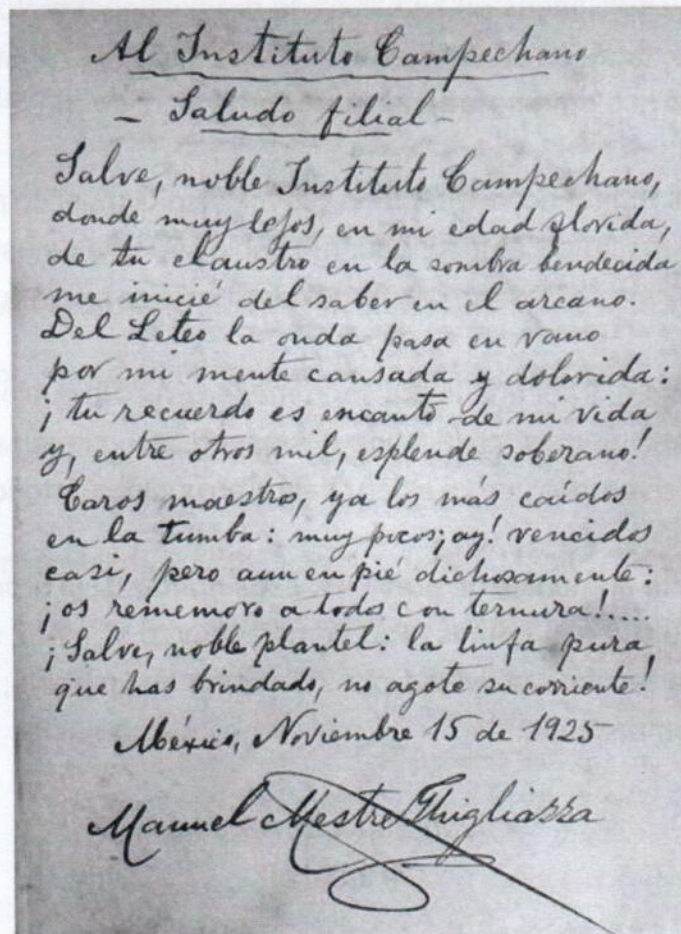 Al Instituto Campechano
- Saludo filial -
Salve, noble Instituto Campechano,
donde muy lejos, en mi edad florida,
de tu claustro en la sombra bendecida
me inicié del saber en el arcano.
Del Leteo la onda pasa en vano
por mi mente cansada y dolorida:
¡tu recuerdo es encanto de mi vida
y, entre otros mil, esplende soberano!
Caros maestros, ya los más caídos
en la tumba: muy pocos ¡ay! vencidos
casi, pero aun en pié dichosamente:
¡os rememoro a todos con ternura!....
¡Salve, noble plantel: la linfa pura
que has brindado, no agote su corriente!
México, Noviembre 15 de 1925
Manuel Mestre Ghigliazza